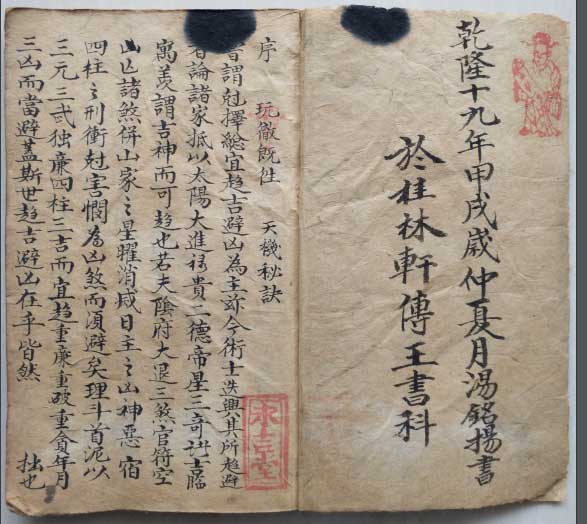 乾隆十九年甲戌歲仲夏月湯銘揚書
於桂林軒傳王書科
序 玩徹既往 天機秘訣
者謂尅擇總宜趋吉避凶為主玆今術士迭興其所趋避
者論諸家抵以太陽大進祿貴二德帝星三奇
寓美謂吉神而可趋也若夫陰府大退三煞官符空
山凶諸煞併山家之星曜消滅日主之凶神惡宿
四柱之刑衝尅害憫為凶煞而須避矣理斗首泥以
三元三武独廉四柱三吉而宜趋重廉重破重貪年月
三凶而當避蓋斯世趋吉避凶在乎皆然 拙也